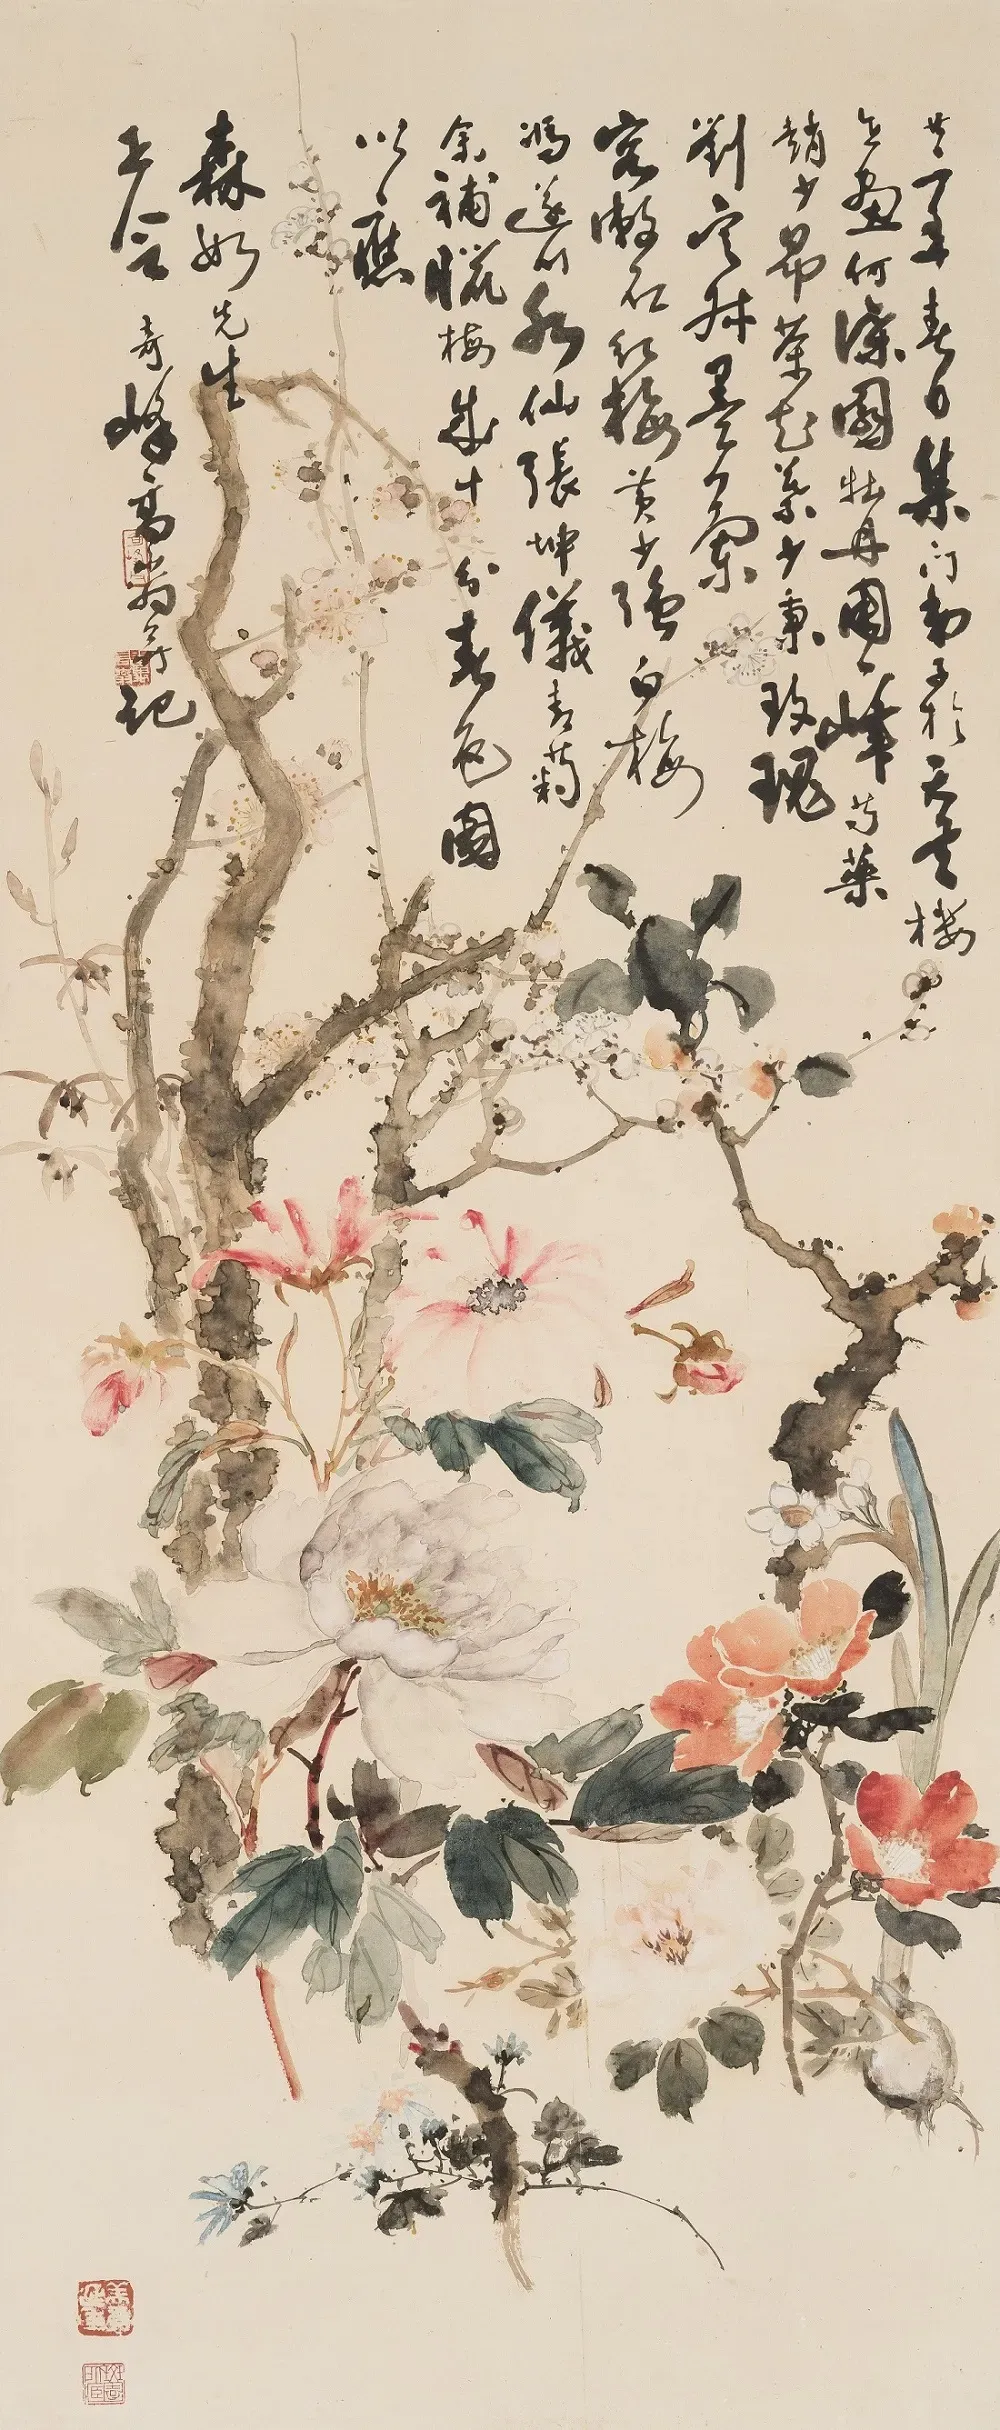 廿一年春日集門弟子於天風樓
合畫何漆園牡丹周一峰芍藥
趙少昂茶花葉少秉玫瑰
劉定叔墨蘭
容漱石紅梅黃少強白梅
馮遂川水仙張坤儀青菊
余補臘梅成十分春色圖
以應
森如先生
正令 奇峰高嵡并記